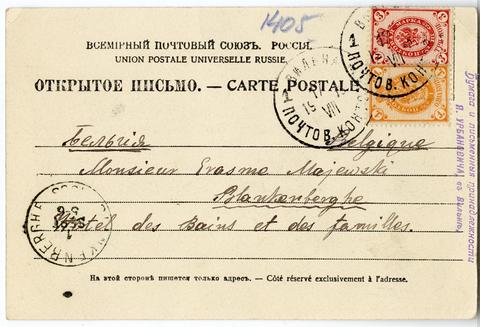 1405
ВСЕМІРНЫЙ ПОЧТОВЫЙ СОЮЗЪ. РОССІЯ.
UNION POSTALE UNIVERSELLE RUSSIE.
ОТКРЫТОЕ ПИСЬМО. — CARTE POSTALE
ВИЛЬНА
ПОЧТОВ. КОН.
VII
Бельгія Belgique
Monsieur Erasme Majewski
Blankenberghe
Hôtel des Bains et des familles.
BLANKENBERGHE
На этой сторонѣ пишется только адресъ. — Côté réservé exclusivement à l'adresse.
Бумага и письменныя принадлежности
Я. УРБАНОВИЧА въ Вильнѣ